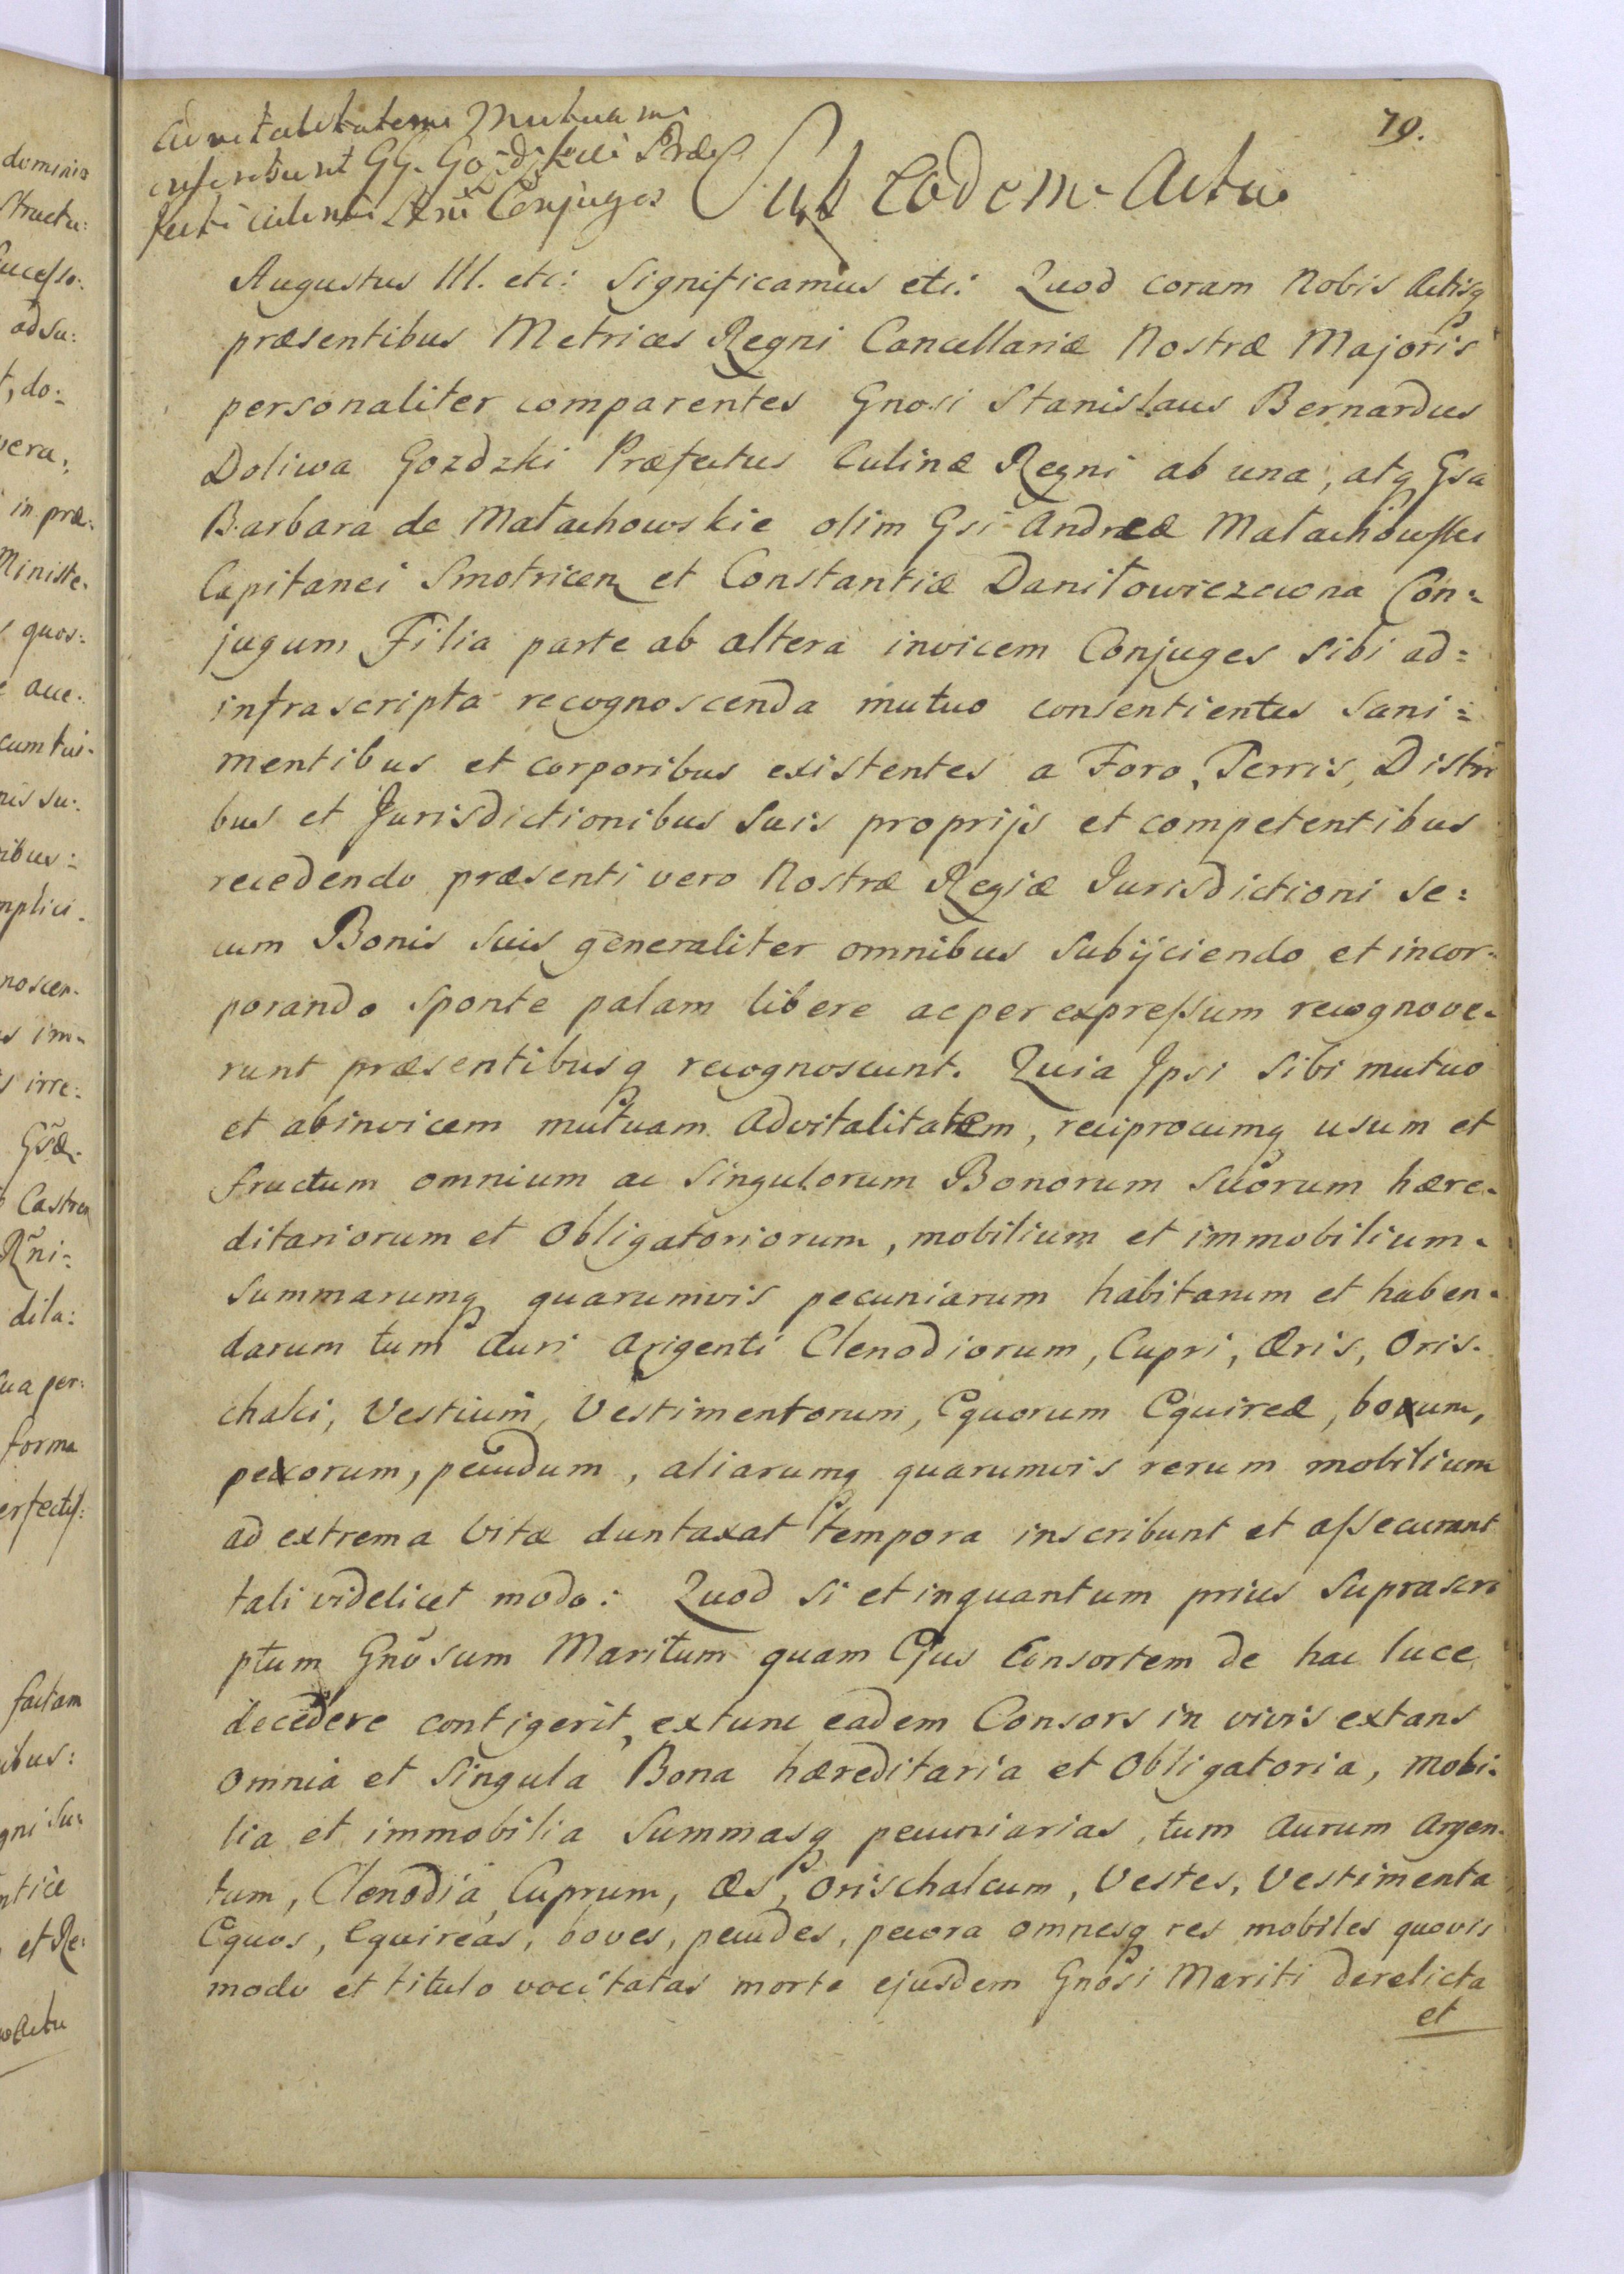 79.
Advitalitatem Mutuam
inscribunt GG. Gozdzkii Præ
fecti culinæ Rni Conjuges
Sub eodem Actu
Augustus III. etc: Significamus etc: Quod coram Nobis Actisq
præsentibus Metrices Regni Cancellariæ Nostræ Majoris
personaliter comparentes Gnosi Stanislaus Bernardus
Doliwa Gozdzki Præfectus Culinæ Regni ab una, atq Gsa
Barbara de Małachowskie olim Gsi Andreæ Małachowski
Capitanei Smotricen et Constantiæ Daniłowiczewna Con=
jugum Filia parte ab altera invicem Conjuges sibi ad=
infrascripta recognoscenda mutuo consentientes Sani=
mentibus et corporibus existentes a Foro, Terris, Distri
bus et Jurisdictionibus Suis proprijs et competentibus
recedendo præsenti vero Nostræ Regiæ Jurisdictioni se=
cum Bonis Suis generaliter omnibus Subijciendo et incor=
porando Sponte palam libere ac per expressum recognove=
runt præsentibusq recognoscunt. Quia Ipsi Sibi mutuo
et abinvicem mutuam advitalitatem, reciprocumq usum et
fructum omnium ac Singulorum Bonorum Suorum hære=
ditariorum et Obligatoriorum, mobilium et immobilium
Summarumq quarumvis pecuniarum habitarum et haben=
darum tum Auri Arigenti Clenodiorum, Cupri, Æris, Oris=
chalci, Vestium, Vestimentorum, Equorum Equireæ, boxum,
pexorum, pecudum, aliarumq quarumvis rerum mobilium
ad extrema Vitæ duntaxat tempora inscribunt et assecurant
tali videlicet modo: Quod Si et inquantum prius Suprascri
ptum Gnosum Maritum quam Ejus Consortem de hac luce
decedere contigerit, extunc eadem Consors in vivis extans
Omnia et Singula Bona hæreditaria et Obligatoria, Mobi=
lia et immobilia Summasq pecuniarias, tum Aurum Argen=
tum, Clenodia, Cuprum, Æs, Orischalcum, Vestes, Vestimenta
Equos, Equireas, boves, pecudes, pecora Omnesq res mobiles quovis
modo et titulo vocitatas morte ejusdem Gnosi Mariti derelicta
et